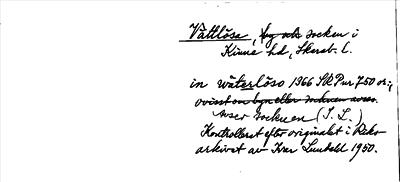 Vättlösa, by och socken i
Kinne hd, Skarab. l.
in wäterlöso 1366 SRPur 750 or.;
ovisst om byn eller socknen avses.
Avser socknen (I. L.)
Kontrollerat efter originalet i Riks-
arkivet av Ivar Lundahl 1950.